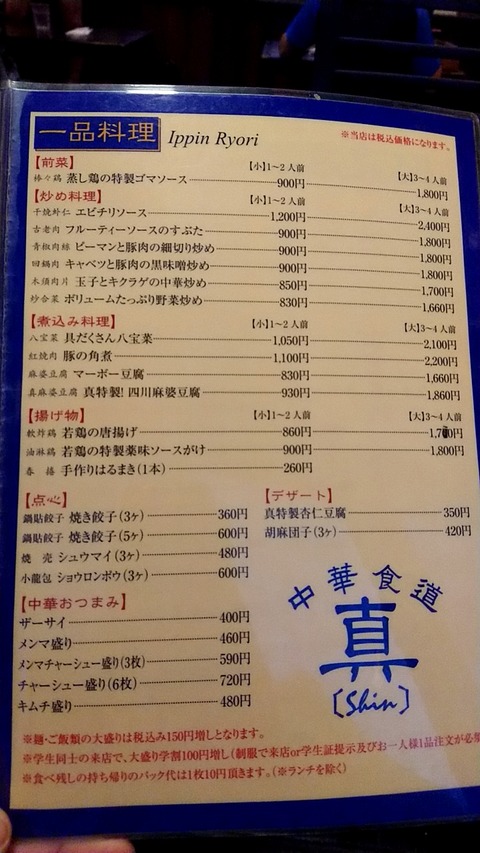 一品料理 Ippin Ryori
※当店は税込価格になります。
【前菜】 【小】1〜2人前 【大】3〜4人前
棒々鶏 蒸し鶏の特製ゴマソース 900円 1,800円
【炒め料理】 【小】1〜2人前 【大】3〜4人前
干焼蝦仁 エビチリソース 1,200円 2,400円
古老肉 フルーティーソースのすぶた 900円 1,800円
青椒肉絲 ピーマンと豚肉の細切り炒め 900円 1,800円
回鍋肉 キャベツと豚肉の黒味噌炒め 900円 1,800円
木須肉片 玉子とキクラゲの中華炒め 850円 1,700円
炒合菜 ボリュームたっぷり野菜炒め 830円 1,660円
【煮込み料理】 【小】1〜2人前 【大】3〜4人前
八宝菜 具だくさん八宝菜 1,050円 2,100円
紅焼肉 豚の角煮 1,100円 2,200円
麻婆豆腐 マーボー豆腐 830円 1,660円
真麻婆豆腐 真特製!四川麻婆豆腐 930円 1,860円
【揚げ物】 【小】1〜2人前 【大】3〜4人前
軟炸鶏 若鶏の唐揚げ 860円 1,700円
油淋鶏 若鶏の特製薬味ソースがけ 900円 1,800円
春捲 手作りはるまき(1本) 260円
【点心】
鍋貼餃子 焼き餃子(3ヶ) 360円
鍋貼餃子 焼き餃子(5ヶ) 600円
焼売 シュウマイ(3ヶ) 480円
小龍包 ショウロンポウ(3ヶ) 600円
【デザート】
真特製杏仁豆腐 350円
胡麻団子(3ヶ) 420円
【中華おつまみ】
ザーサイ 400円
メンマ盛り 460円
メンマチャーシュー盛り(3枚) 590円
チャーシュー盛り(6枚) 720円
キムチ盛り 480円
中華食道
真
[Shin]
※麺・ご飯類の大盛りは税込み150円増しとなります。
※学生同士の来店で、大盛り学割100円増し(制服で来店or学生証提示及びお一人様1品注文が必
※食べ残しの持ち帰りのパック代は1枚10円頂きます。(※ランチを除く)